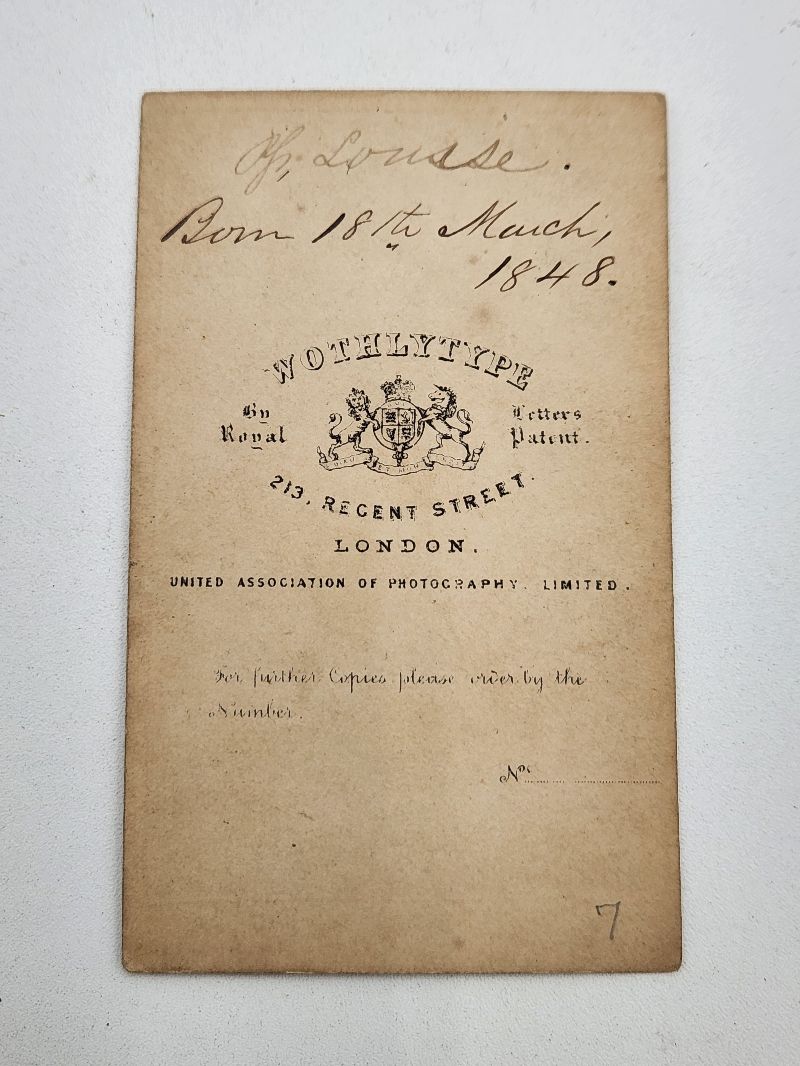 Ps, Louise.
Born 18th March,
1848.
WOTHLYTYPE
By Royal
Letters Patent.
DIEU ET MON
213, REGENT STREET.
LONDON.
UNITED ASSOCIATION OF PHOTOGRAPHY. LIMITED.
For further Copies please order by the
Number.
No.
7